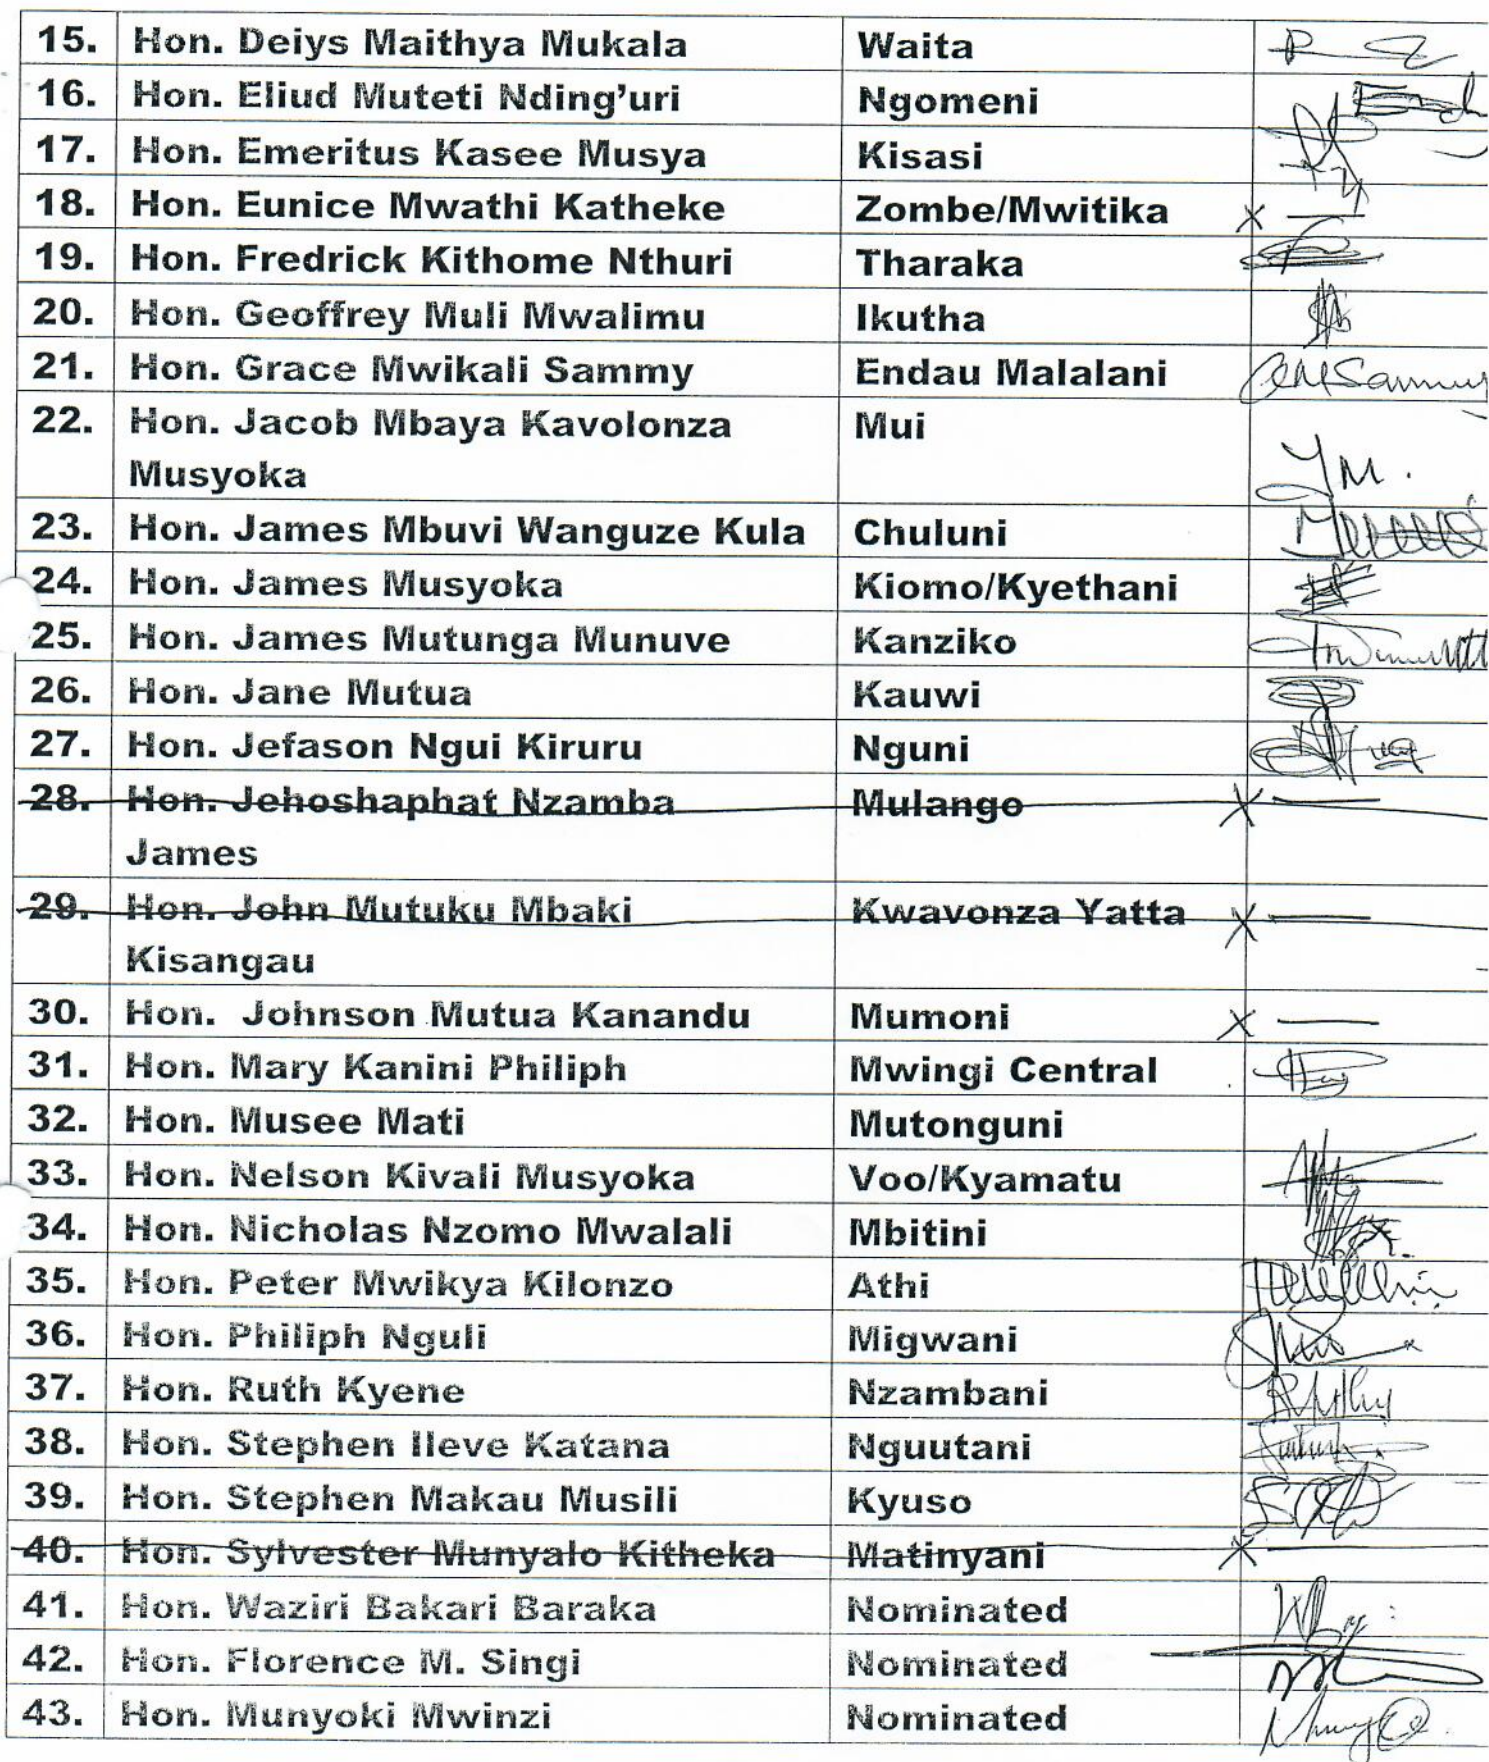 15. Hon. Deiys Maithya Mukala Waita
16. Hon. Eliud Muteti Nding'uri Ngomeni
17. Hon. Emeritus Kasee Musya Kisasi
18. Hon. Eunice Mwathi Katheke Zombe/Mwitika X —
19. Hon. Fredrick Kithome Nthuri Tharaka
20. Hon. Geoffrey Muli Mwalimu Ikutha
21. Hon. Grace Mwikali Sammy Endau Malalani
22. Hon. Jacob Mbaya Kavolonza Mui
Musyoka
23. Hon. James Mbuvi Wanguze Kula Chuluni
24. Hon. James Musyoka Kiomo/Kyethani
25. Hon. James Mutunga Munuve Kanziko
26. Hon. Jane Mutua Kauwi
27. Hon. Jefason Ngui Kiruru Nguni
28. Hon. Jehoshaphat Nzamba Mulango X —
James
29. Hon. John Mutuku Mbaki Kwavonza Yatta X —
Kisangau
30. Hon. Johnson Mutua Kanandu Mumoni X —
31. Hon. Mary Kanini Philiph Mwingi Central
32. Hon. Musee Mati Mutonguni
33. Hon. Nelson Kivali Musyoka Voo/Kyamatu
34. Hon. Nicholas Nzomo Mwalali Mbitini
35. Hon. Peter Mwikya Kilonzo Athi
36. Hon. Philiph Nguli Migwani
37. Hon. Ruth Kyene Nzambani
38. Hon. Stephen Ileve Katana Nguutani
39. Hon. Stephen Makau Musili Kyuso
40. Hon. Sylvester Munyalo Kitheka Matinyani X —
41. Hon. Waziri Bakari Baraka Nominated
42. Hon. Florence M. Singi Nominated
43. Hon. Munyoki Mwinzi Nominated